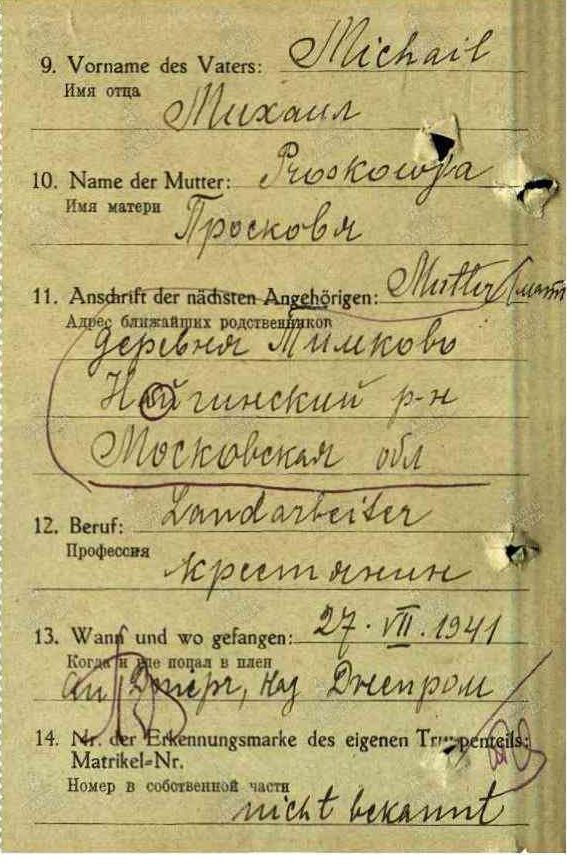 9. Vorname des Vaters: Michail
Имя отца
Михаил
10. Name der Mutter: Proskowja
Имя матери
Просковя
11. Anschrift der nächsten Angehörigen: Mutter (мать
Адрес ближайших родственников
деревня Тимково
Ногинский р-н
Московская обл
12. Beruf: Landarbeiter
Профессия
крестянин
13. Wann und wo gefangen: 27. VII. 1941
Когда и где попал в плен
am Dnepr, над Днепром
14. Nr. der Erkennungsmarke des eigenen Truppenteils:
Matrikel-Nr.
Номер в собственной части
nicht bekannt